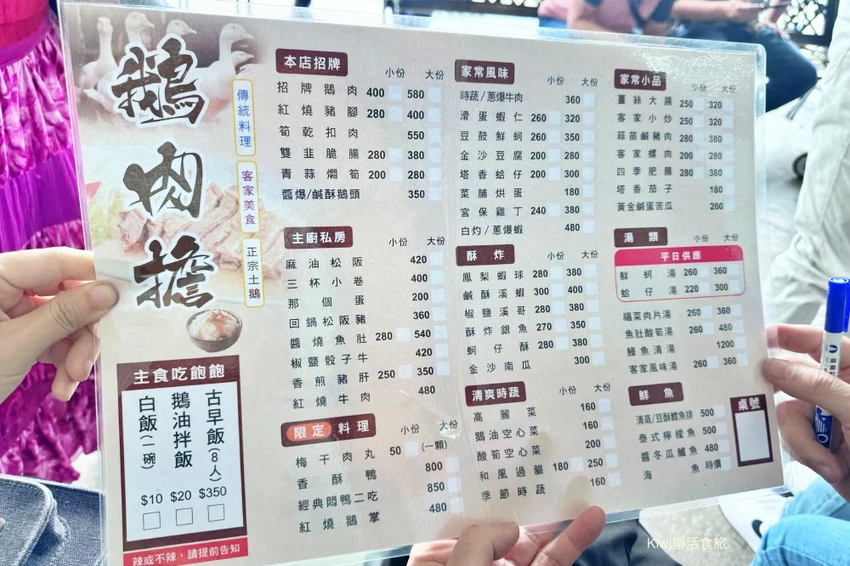 鵝肉擔
傳統料理
客家美食
正宗土鵝
主食吃飽飽
古早飯(8人) $350
鵝油拌飯 $20
白飯(一碗) $10
辣或不辣，請提前告知
本店招牌 小份 大份
招牌鵝肉 400 580
紅燒豬腳 280 400
筍乾扣肉 550
雙韭脆腸 280 380
青蒜燜筍 200 280
醬爆/鹹酥鵝頭 350
主廚私房 小份 大份
麻油松阪 420
三杯小卷 400
那個蛋 200
回鍋松阪豬 360
醬燒魚肚 280 540
椒鹽骰子牛 420
香煎豬肝 250 350
紅燒牛肉 480
限定料理 小份 大份
梅干肉丸 50 (一顆)
香酥鴨 800
經典悶鴨二吃 850
紅燒鵝掌 480
家常風味 小份 大份
時蔬/蔥爆牛肉 360
滑蛋蝦仁 260 320
豆鼓鮮蚵 260 350
金沙豆腐 200 280
塔香蛤仔 200 300
菜脯烘蛋 180
宮保雞丁 240 380
白灼/蔥爆蝦 480
酥炸 小份 大份
鳳梨蝦球 280 380
鹹酥溪蝦 300 400
椒鹽溪哥 280 380
酥炸銀魚 270 350
蚵仔酥 280 380
金沙南瓜 300
清爽時蔬 小份 大份
高麗菜 160
鵝油空心菜 160
酸筍空心菜 200
和風過貓 180 250
季節時蔬 160
家常小品 小份 大份
薑絲大腸 250 320
客家小炒 250 320
蒜苗鹹豬肉 280 380
客家螺肉 200 280
四季肥腸 280 380
塔香茄子 180
黃金鹹蛋苦瓜 200
湯類 小份 大份
平日供應
鮮蚵湯 260 360
蛤仔湯 220 300
福菜肉片湯 260 360
魚肚酸筍湯 260 480
鰻魚清湯 1200
客家風味湯 260 360
鮮魚
清蒸/豆酥鱈魚排 500
泰式檸檬魚 500
醬冬瓜鱸魚 480
海魚 時價
桌號
Kiwi樂活食旅